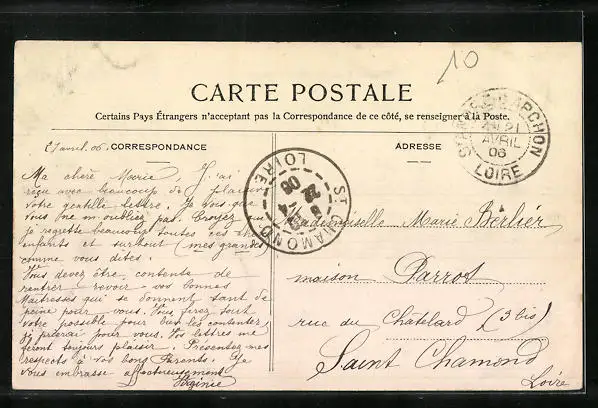 10
CARTE POSTALE
Certains Pays Étrangers n'acceptent pas la Correspondance de ce côté, se renseigner à la Poste.
21 avril 06. CORRESPONDANCE
ADRESSE
ARCHON
21
AVRIL
06
LOIRE
ST CHAMOND
LOIRE
Ma chère Marie, J'ai
reçu avec beaucoup de plaisir
votre gentille lettre. Je vois que
vous ne m'oubliez pas. Croyez que
je regrette beaucoup toutes ces chères
enfants et surtout (mes grandes)
comme vous dites.
Vous devez être contente de
rentrer revoir vos bonnes
Maîtresses qui se donnent tant de
peine pour vous. Vous ferez tout
votre possible pour bien les contenter,
je prierai pour vous. Vos lettres me
feront toujours plaisir. Présentez mes
respects à vos bons Parents. Je
vous embrasse affectueusement
Virginie
Mademoiselle Marie Berlier
maison Parrot
rue du Châtelard (3 bis)
Saint Chamond
Loire